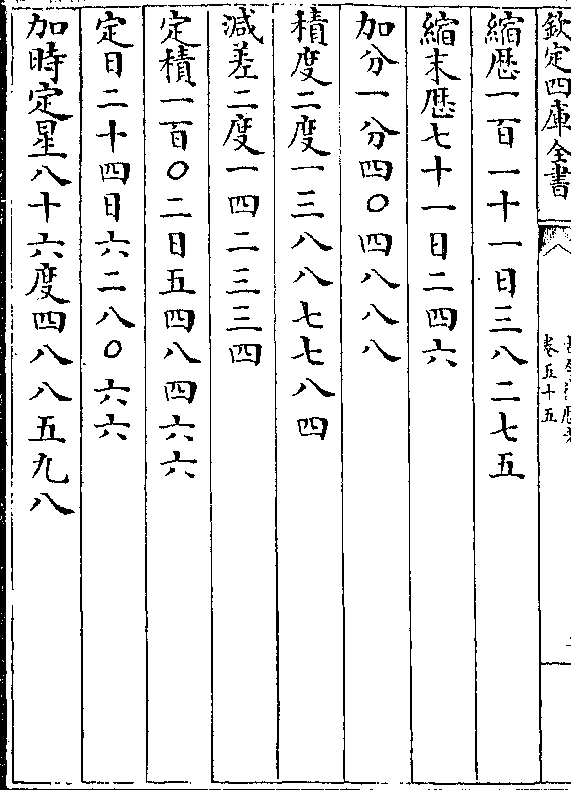 欽定四庫全書
卷五十五
縮厯一百一十一日三八二七五
縮末厯七十一日二四六
加分一分四〇四八八八
積度二度一三八八七七八四
減差二度一四二三三四
定積一百〇二日五四八四六六
定日二十四日六二八〇六六
加時定星八十六度四八八五九八